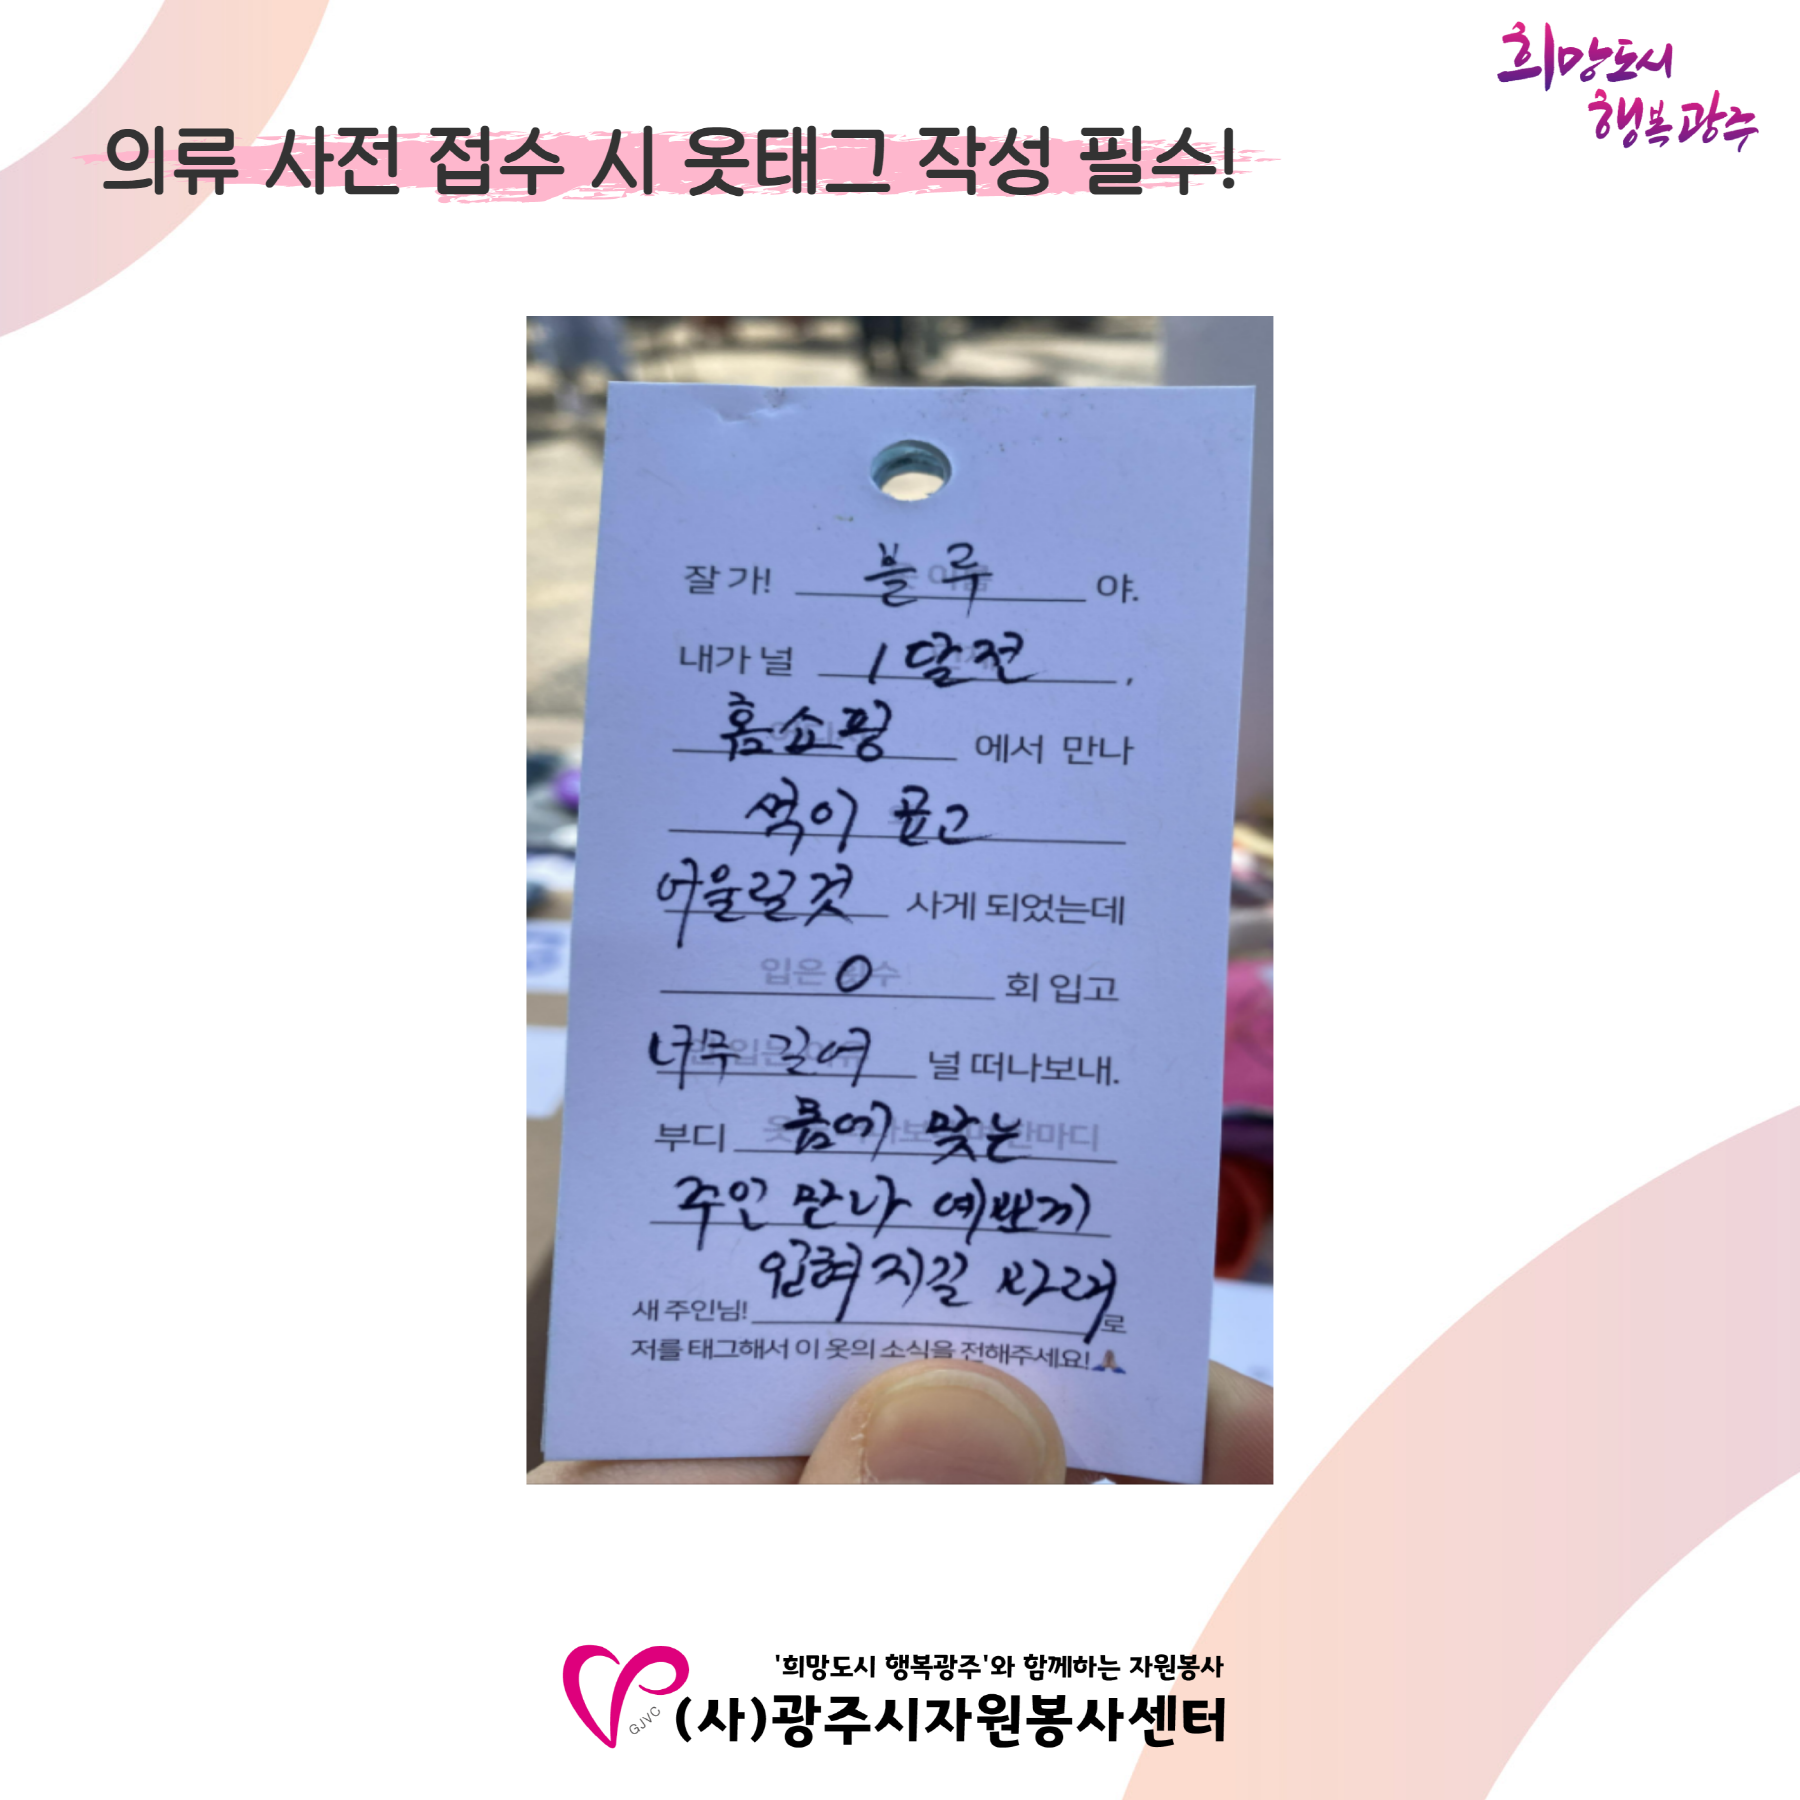 희망도시
행복광주
의류 사전 접수 시 옷태그 작성 필수!
잘 가! 블루 야.
내가 널 1달전,
홈쇼핑 에서 만나
색이 곱고
어울릴것 사게 되었는데
입은 횟수 0 회 입고
너무 길어 널 떠나보내.
부디 몸에 맞는
주인 만나 예쁘게
입혀지길 바래
새 주인님! 로
저를 태그해서 이 옷의 소식을 전해주세요!🙏
'희망도시 행복광주'와 함께하는 자원봉사
(사)광주시자원봉사센터
GJVC